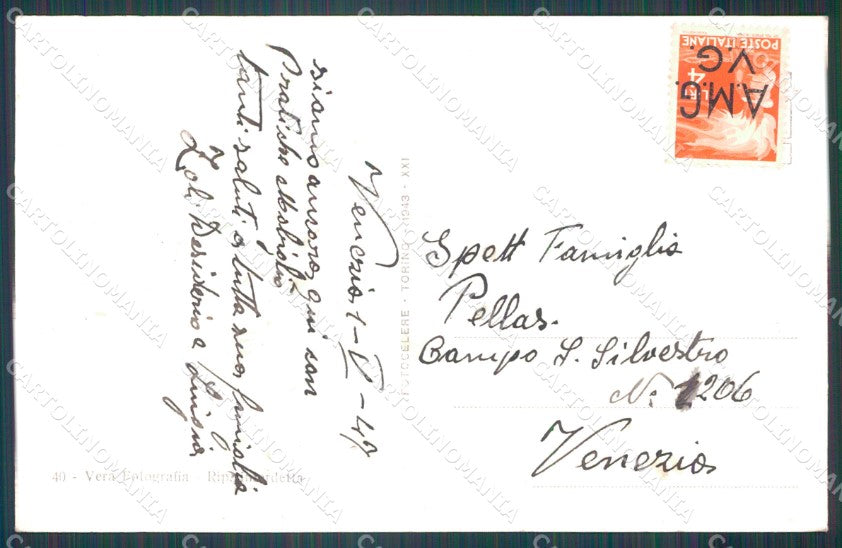 Venezia 1-V-47
siamo ancora qui con
Pratiche Mobiglio
tanti saluti a tutta sua famiglia
Zoli Desiderio e Luigia
Spett Famiglia
Pellas.
Campo S. Silvestro
N: 1206
Venezia
POSTE ITALIANE
LIRE 4
A.M.G.
V.G.
FOTOCELERE · TORINO · 1943 - XXI
40 - Vera Fotografia - Ripr. interdetta
CARTOLINOMANIA